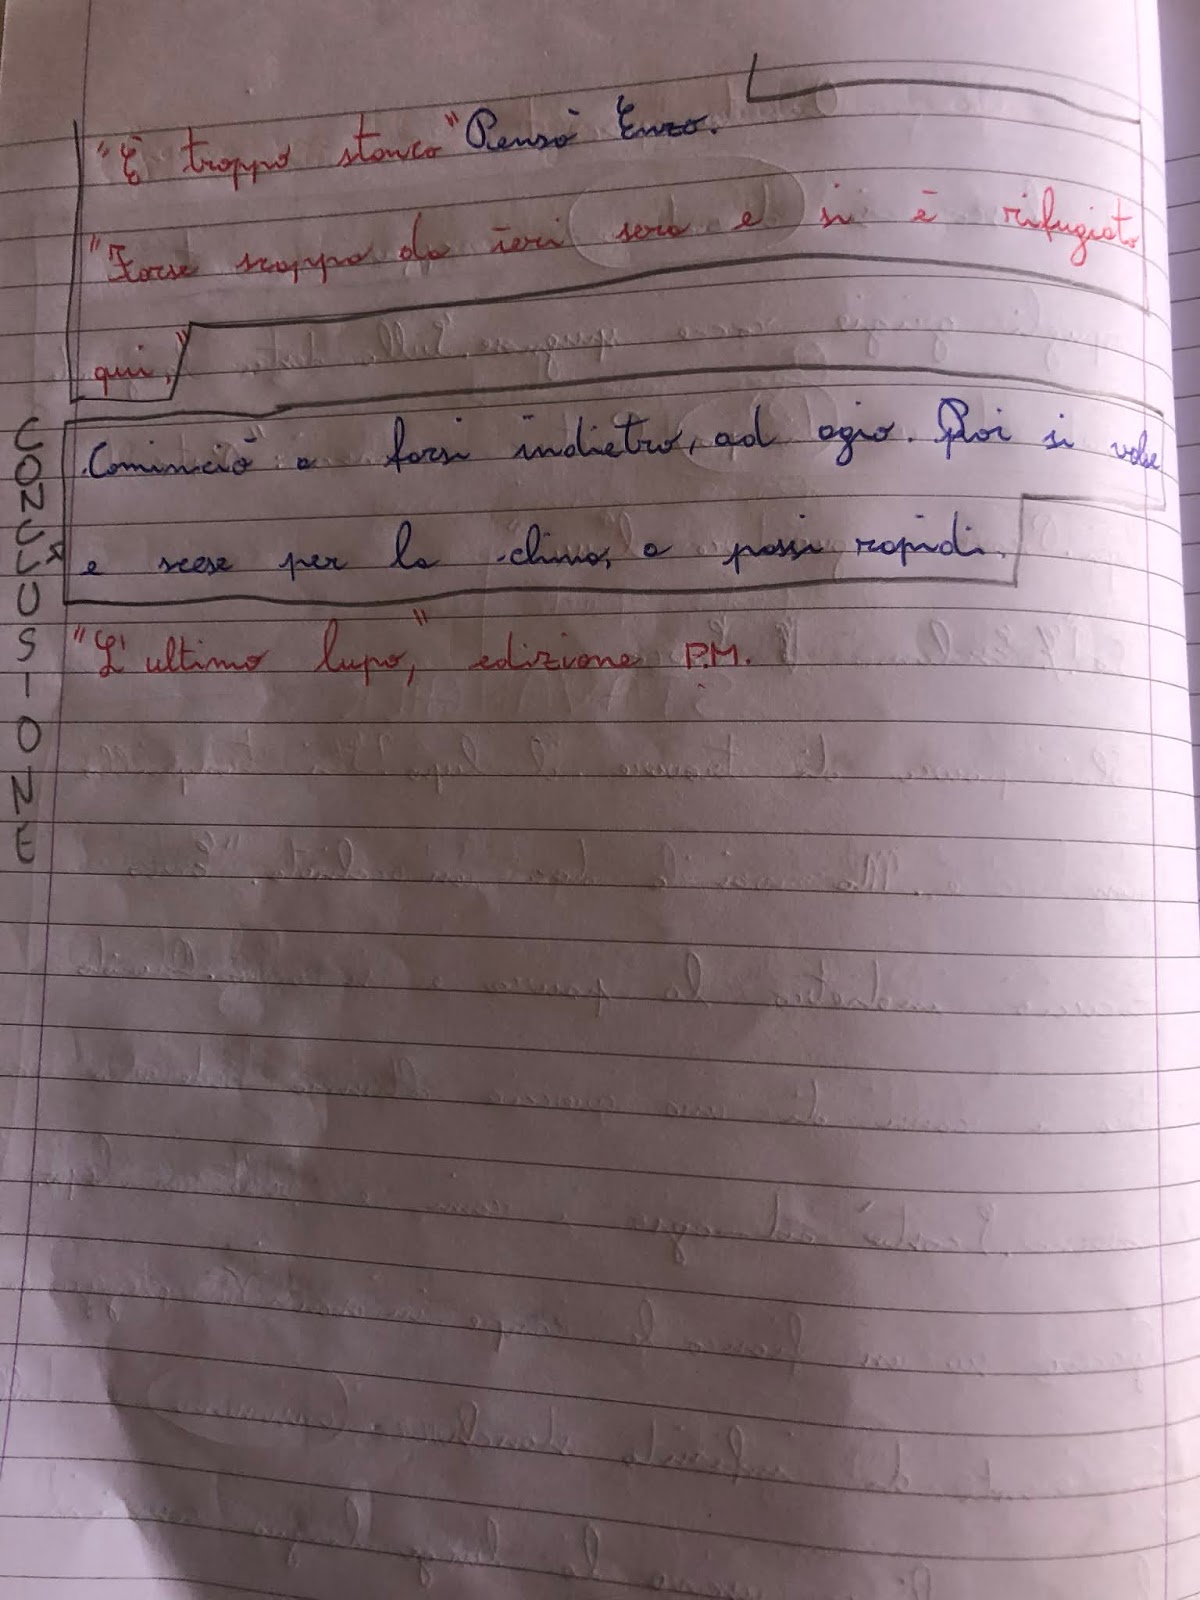 "È troppo stanco" Pensò Enzo.
"Forse scappa da ieri sera e si è rifugiato
qui,"
Cominciò a farsi indietro, ad agio. Poi si volse
e scese per la china, a passi rapidi.
"L'ultimo lupo," edizione P.M.
CONCLUSIONE